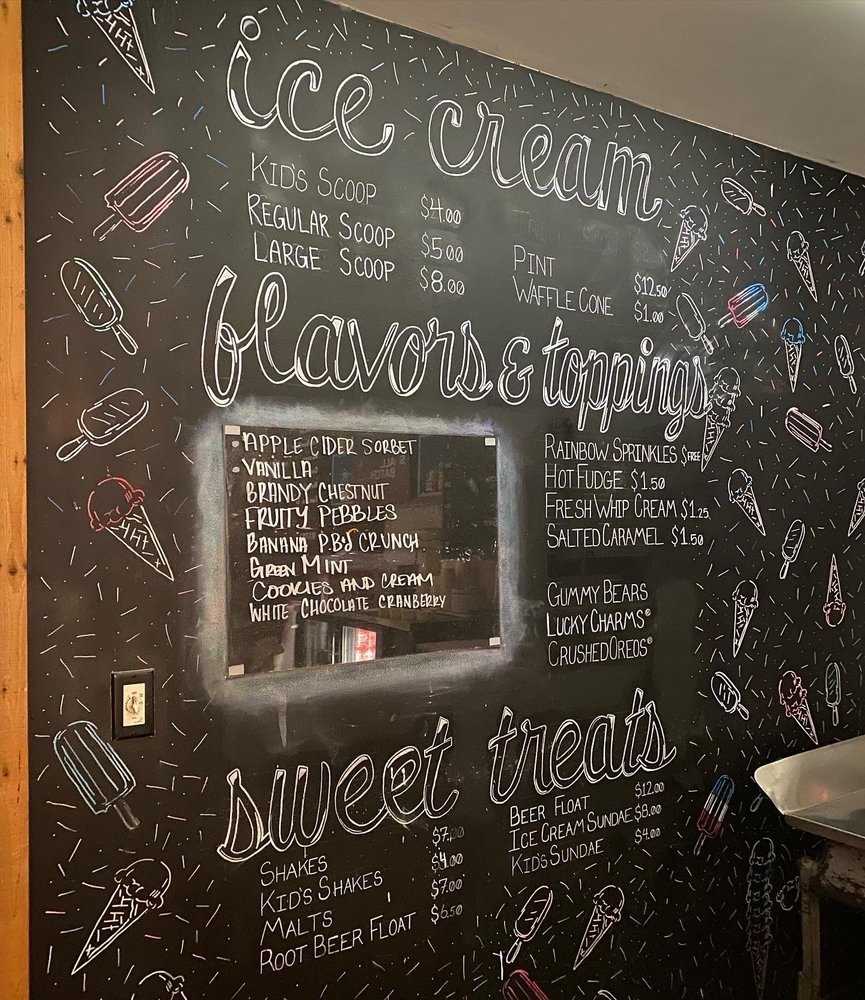 ice cream
KID'S SCOOP $4.00
REGULAR SCOOP $5.00
LARGE SCOOP $8.00
PINT $12.50
WAFFLE CONE $1.00
flavors & toppings
APPLE CIDER SORBET
VANILLA
BRANDY CHESTNUT
FRUITY PEBBLES
BANANA P.B.&J CRUNCH
GREEN MINT
COOKIES AND CREAM
WHITE CHOCOLATE CRANBERRY
RAINBOW SPRINKLES $FREE
HOT FUDGE $1.50
FRESH WHIP CREAM $1.25
SALTED CARAMEL $1.50
GUMMY BEARS
LUCKY CHARMS®
CRUSHED OREOS®
sweet treats
SHAKES $7.00
KID'S SHAKES $4.00
MALTS $7.00
ROOT BEER FLOAT $6.50
BEER FLOAT $12.00
ICE CREAM SUNDAE $8.00
KID'S SUNDAE $4.00